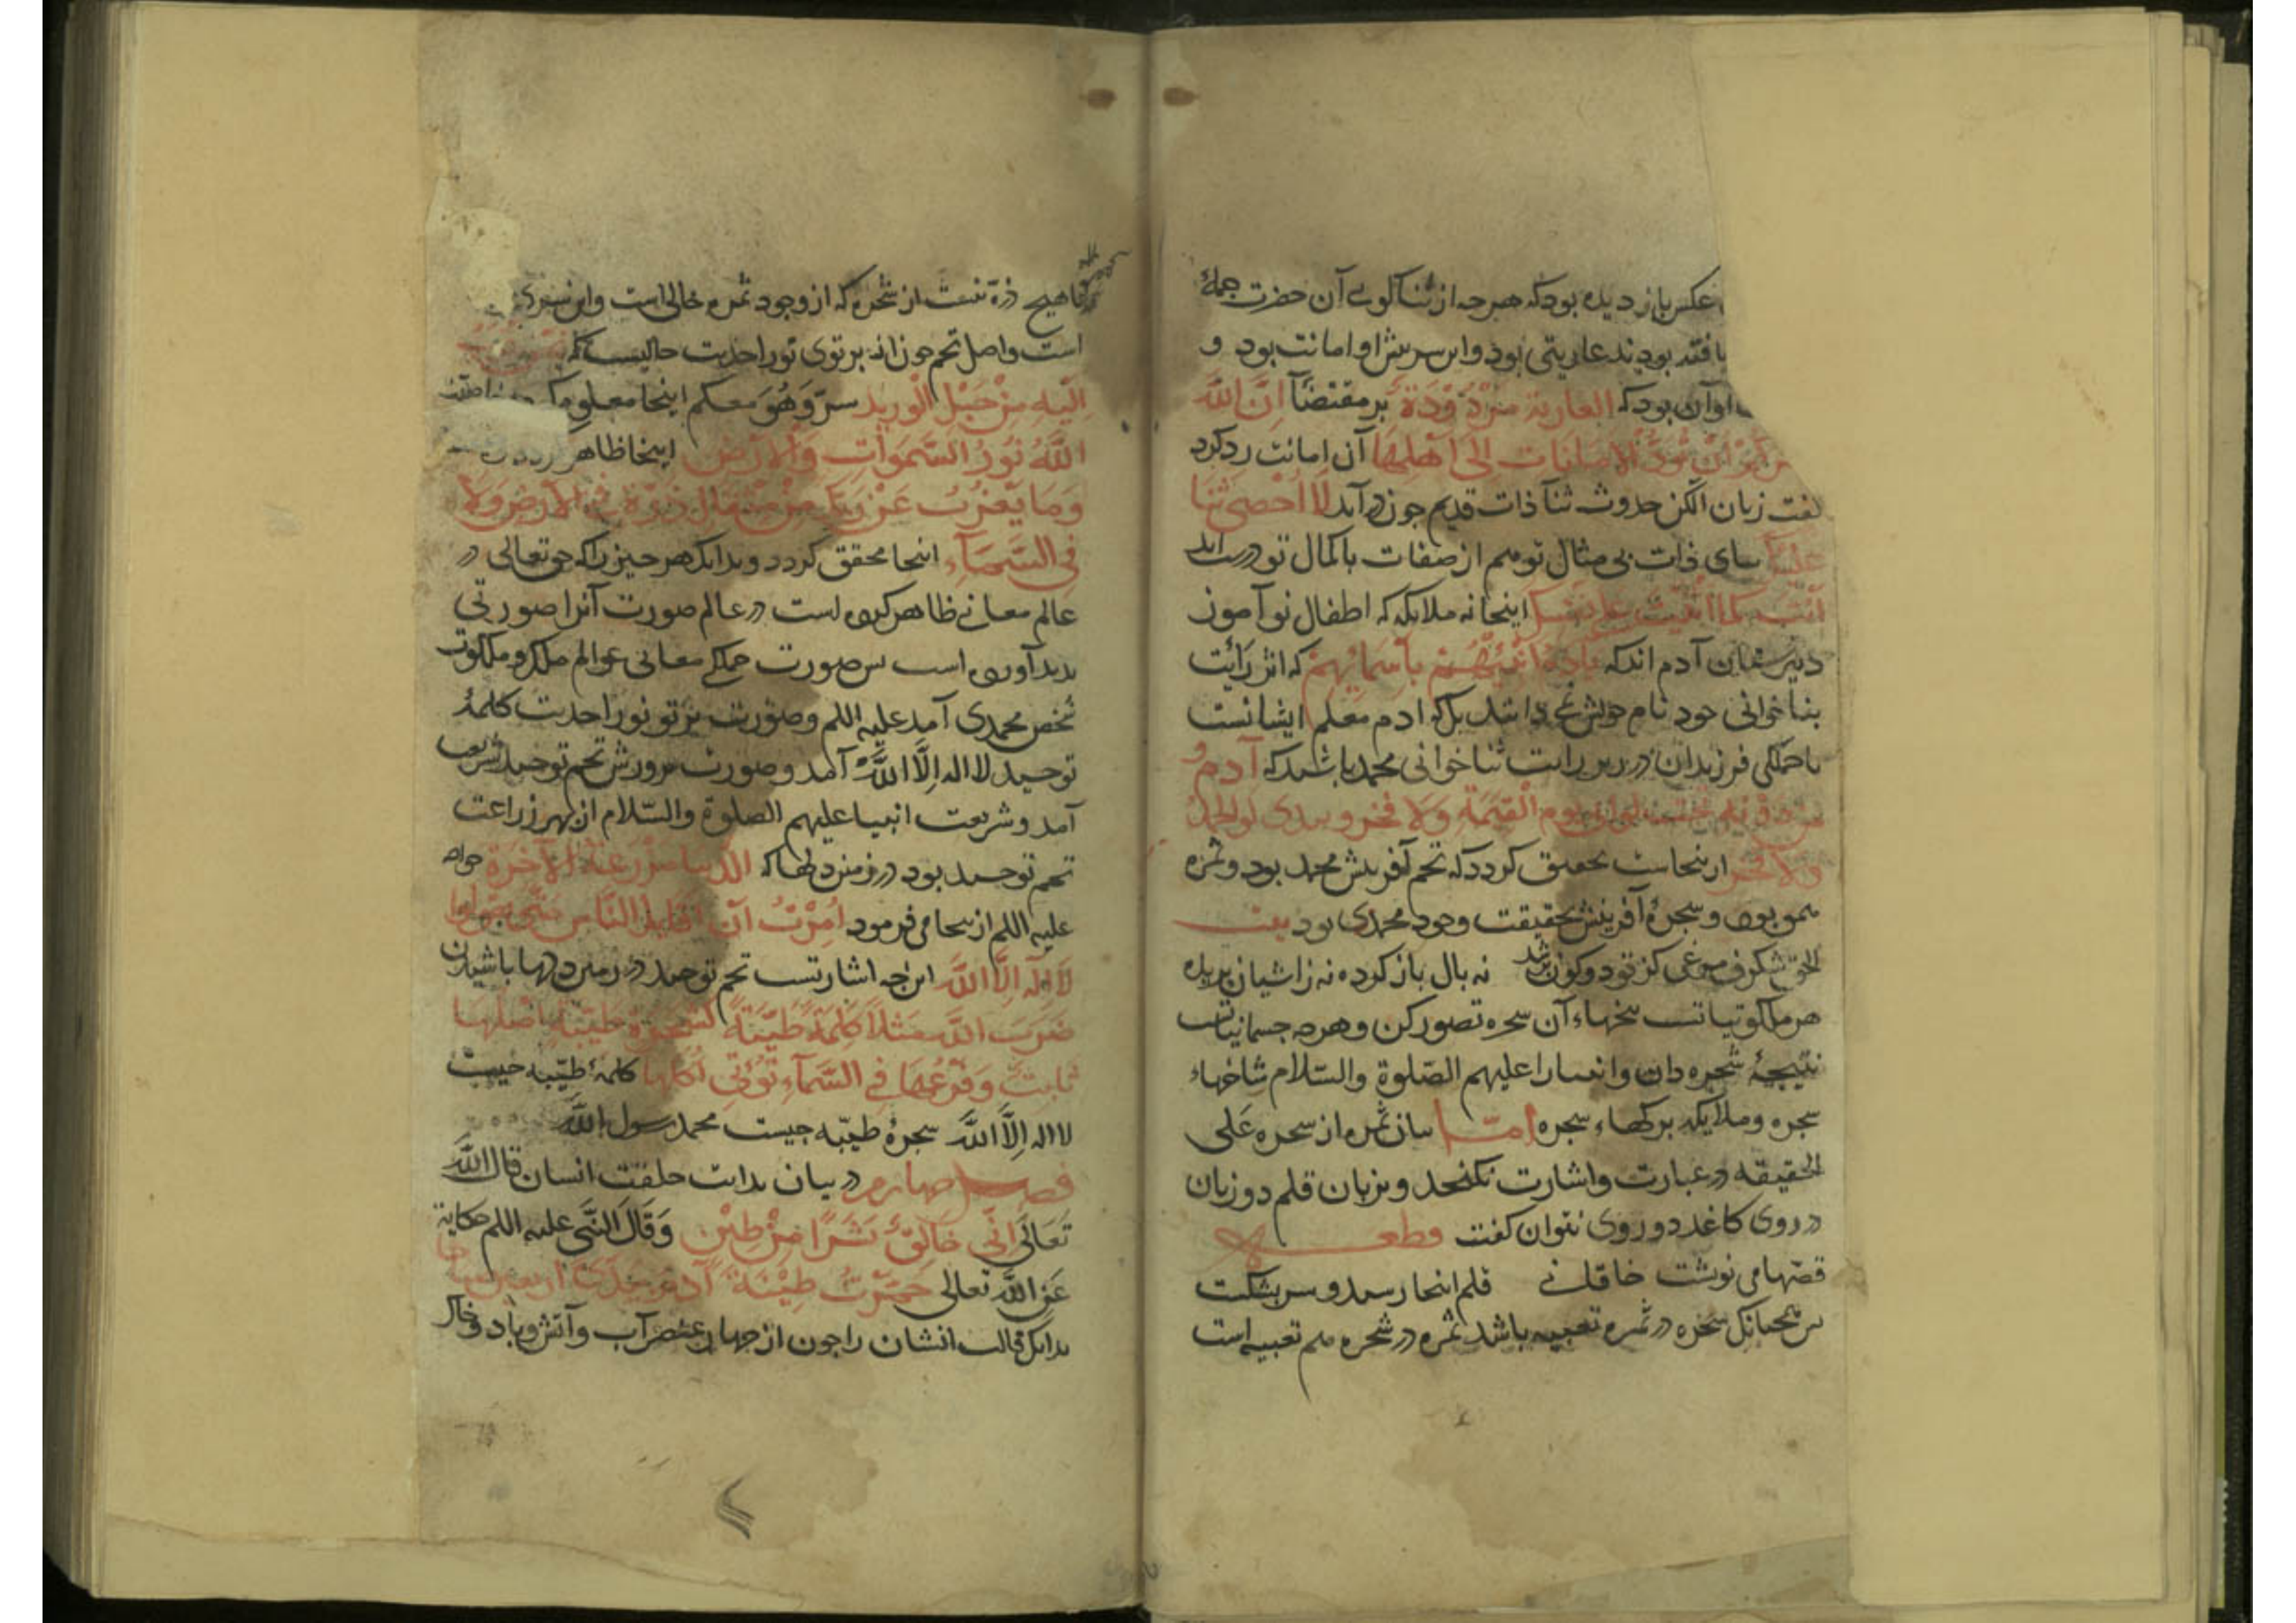 عکس باز دیده بود که هر چه از ثنا کوی آن حضرت جملهٔ
یافته بودند عاریتی بود و این سر بیش او امانت بود و
او آن بود که العاریة مردودة بر مقتضآ انّ الله
یأمرکم ان تودّوا الامانات الی اهلها آن امانت رد کرد
کفت زبان الکن حدوث ثنآ ذات قدیم جون درآید لا احصی ثنا
علیک ثنای ذات بی مثال تو هم از صفات با کمال تو درست آید
انت کما اثنیت علی نفسک اینجا نه ملایکه که اطفال نوآموز
دبیرستان آدم اند که یا آدم انبئهم باسمائهم که اثر رایت
بثنا خوانی خود نام خویش می دانند بلکه ادم معلم ایشانست
با جملکی فرزندان در زیر رایت ثنا خوانی محمد باشد که آدم و
من دونه تحت لوائی یوم القیمة ولا فخر و بیدی لوالحمد
ولا فخر از ینجاست تحقیق کردد که تخم آفرینش محمد بود و ثمره
همو بود و سجرهٔ آفرینش بحقیقت وجود محمدی بود بیت
الحق شکرف مرغی کز تو دو کون پر شد نه بال باز کرده نه زاشیان پریده
هر ملکوتیاتست بیخهاء آن سجره تصور کن و هرجه جسمانیاتست
نتیجهٔ شجره دان و انبیا را علیهم الصّلوة والسّلام شاخهاء
سجره و ملایکه برکهاء سجره امّا بیان ثمره از سجره علی
الحقیقه در عبارت و اشارت نکنجد و بزبان قلم دو زبان
در روی کاغد دو روی نتوان کفت قطعه
قصّها می نوشت خاقانی قلم اینجا رسید و سر بشکست
بس همجنانک سجره در ثمره تعبیه باشد ثمره در شجره هم تعبیه است
تا هیج ذرّه نیست از شجره که از وجود ثمره خالی است و این سری
است و اصل تخم جون از برتوی نور احدیت حالیست که نحن اقرب
الیه من حبل الورید سرّ و هو معکم اینجا معلوم
الله نور السّموات والارض اینجا ظاهر کردد
وما یعزب عن ربک من مثقال ذرّة فی الارض ولا
فی السّمآء اینجا محقق کردد و بدانک هر جیز را که حق تعالی در
عالم معانی ظاهر کرده است در عالم صورت آنرا صورتی
بدید آورده است بس صورت جملکی معانی عوالم ملک و ملکوت
شخص محمدی آمد علیه اللم و صورت برتو نور احدیت کلمهٔ
توحید لا اله الّا اللّه آمد و صورت برورش تخم توحید شریعت
آمد و شریعت انبیا علیهم الصلوة والسّلام از بهر زراعت
تخم توحید بود در زمین دلها که الدنیا مزرعة الآخرة خواجه
علیه اللم از ینجا می فرمود امرت ان اقاتل النّاس حتّی یقولوا
لا اله الّا اللّه این جه اشارتست تخم توحید در زمین دلها باشیدن
ضرب الله مثلا کلمة طیّبة کشجرة طیّبة اصلها
ثابت وفرعها فی السّمآء تؤتی اکلها کلمهٔ طیّبه جیست
لا اله الّا اللّه سجرهٔ طیّبه جیست محمد رسول اللّه
فصل جهارم در بیان بدایت خلقت انسان قال اللّه
تعالی انّی خالق بشرا من طین وقال النّبی علیه اللم حکایة
عن اللّه تعالی خمّرت طینة آدم بیدی اربعین صباحا
بدانک قالب انسان را جون از جهار عنصر آب و آتش و باد و خاک